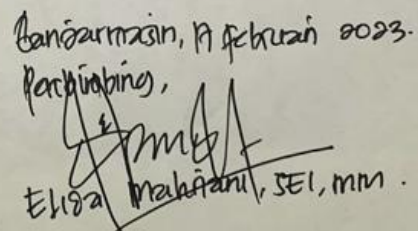 Banjarmasin, 17 Februari 2023.
Pembimbing,
Eliza Mahriani, SEI, mm.